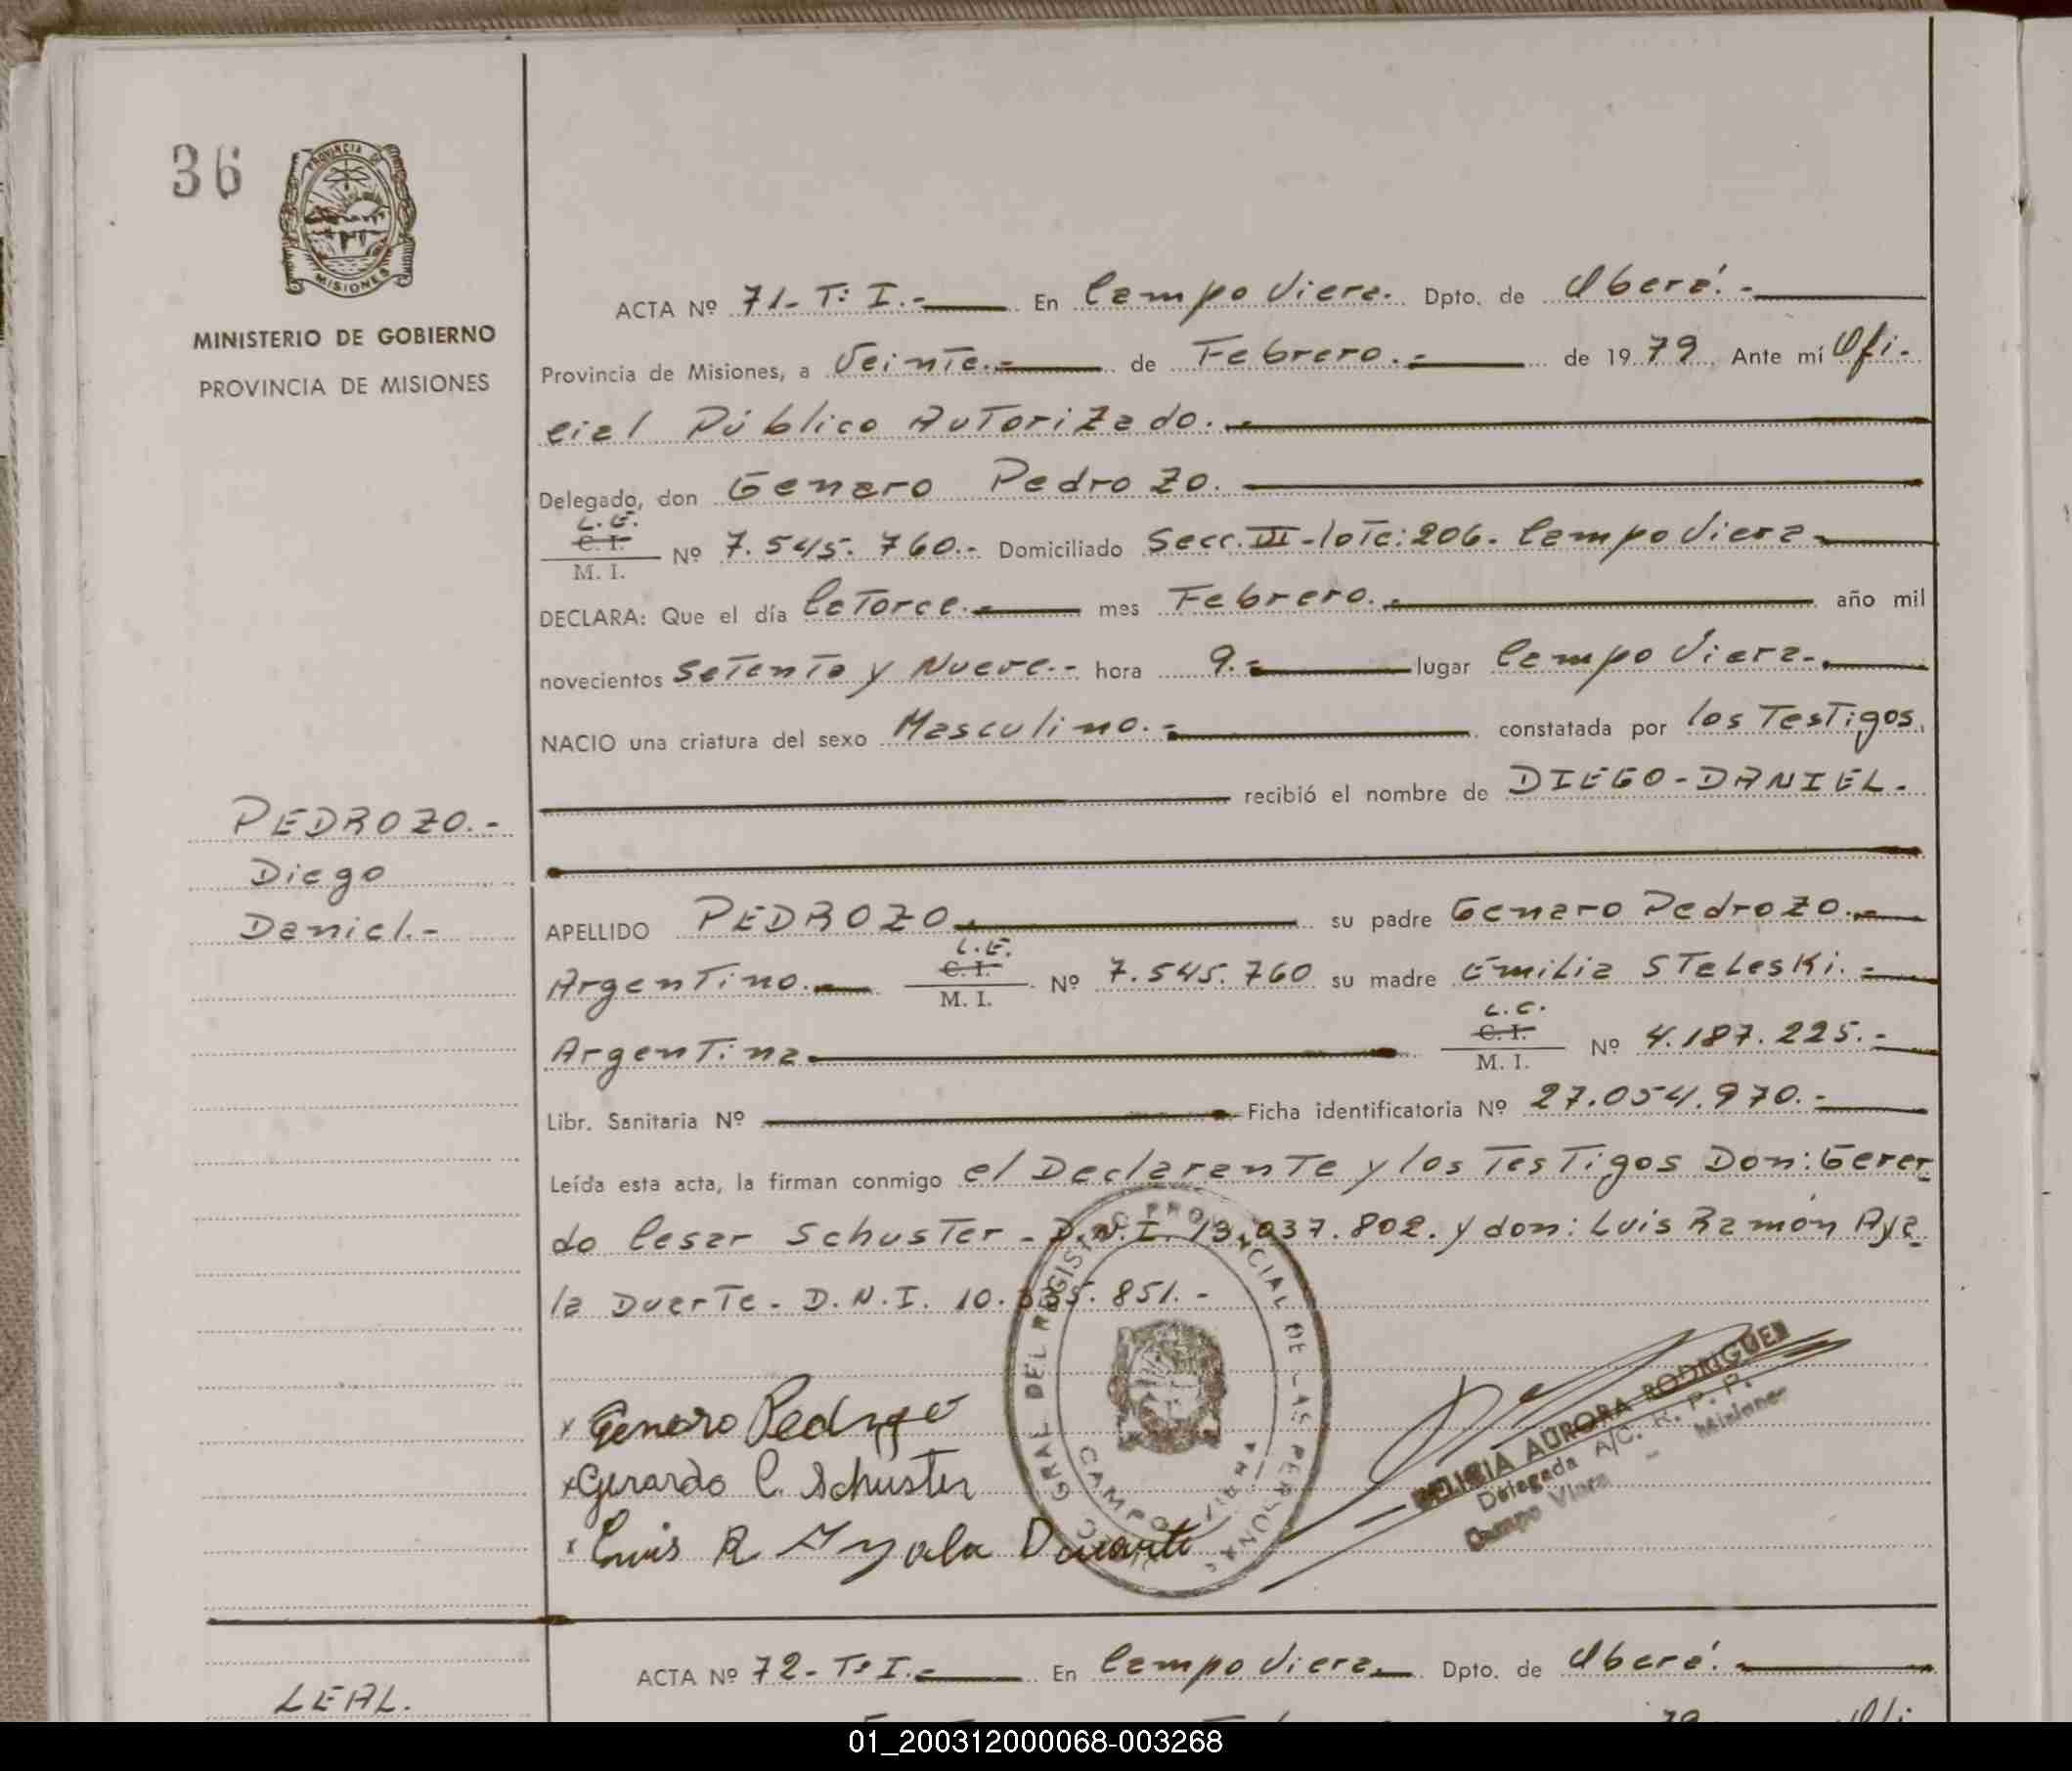 36
PROVINCIA DE
MISIONES
MINISTERIO DE GOBIERNO
PROVINCIA DE MISIONES
ACTA Nº 71- Tº I.- En Campo Viera. Dpto. de Oberá.-
Provincia de Misiones, a Veinte.- de Febrero.- de 1979. Ante mí Ofi-
cial Público Autorizado.-
Delegado, don Genaro Pedrozo.
L.E.
C. I.
M. I.
Nº 7.545.760.- Domiciliado Secc. III-lote: 206. Campo Viera
DECLARA: Que el día Catorce.- mes Febrero.- año mil
novecientos Setenta y Nueve.- hora 9.- lugar Campo Viera.-
NACIO una criatura del sexo Masculino.- constatada por los Testigos.
recibió el nombre de DIEGO-DANIEL-
PEDROZO.-
Diego
Daniel.-
APELLIDO PEDROZO su padre Genaro Pedrozo.-
L.E.
C. I.
M. I.
Argentino.- Nº 7.545.760 su madre Emilia STeLesKi.-
L.C.
C. I.
M. I.
Argentina Nº 4.187.225.-
Libr. Sanitaria Nº Ficha identificatoria Nº 27.054.970.-
Leída esta acta, la firman conmigo el Declarante y los Testigos Don: Gerar
do Cesar Schuster - D.N.I. 13.037.802. y don: Luis Ramón Aya
la Duarte - D.N.I. 10. 851.-
x Genaro Pedrozo
x Gerardo C. Schuster
x Luis R Ayala Duarte
GRAL DEL REGISTRO PROVINCIAL DE LAS PERSONAS
CAMPO VIERA
DELICIA AURORA RODRIGUEZ
Delegada A/C. R. P. P.
Campo Viera - Misiones
ACTA Nº 72- Tº I.- En Campo Viera Dpto. de Oberá.-
LEAL.
79
01_200312000068-003268